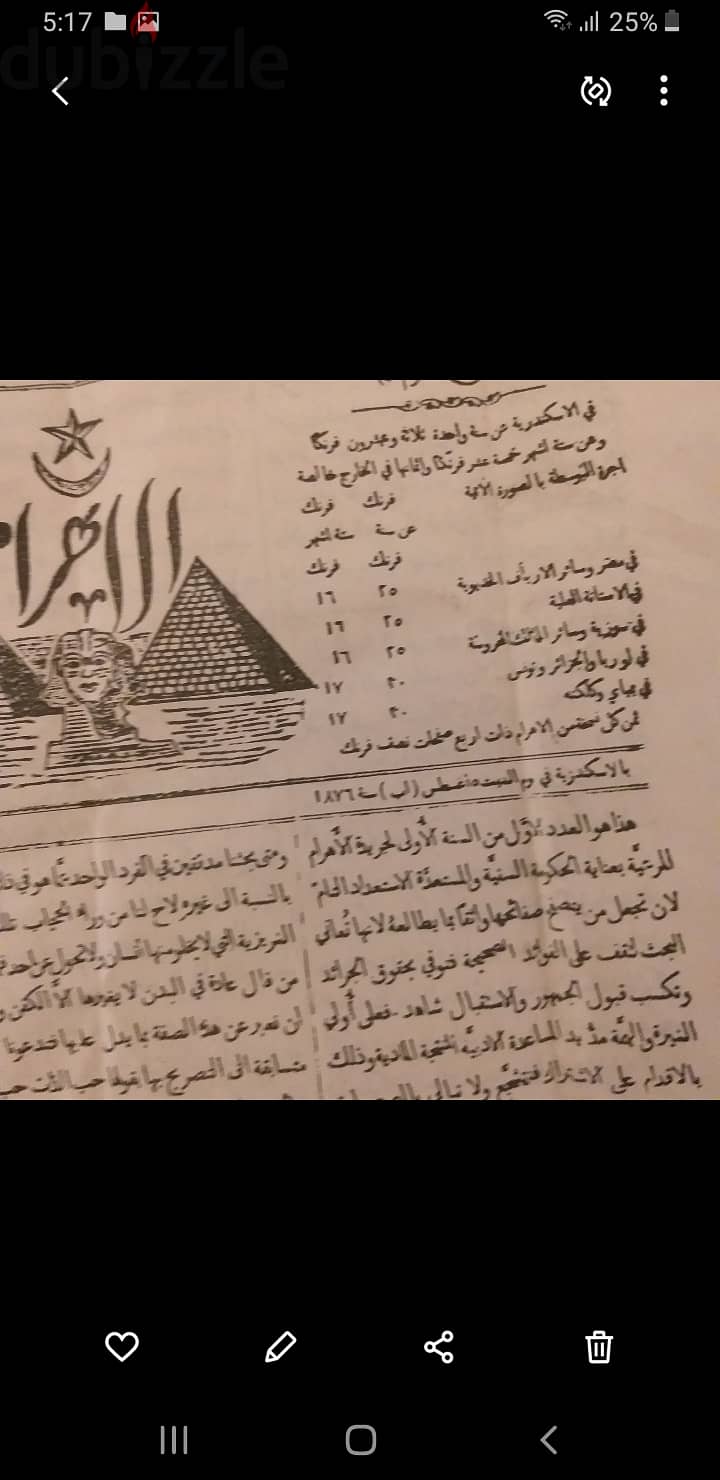 5:17
25%
dubizzle
في الاسكندرية عن سنة واحدة ثلاثة وعشرون فرنكا
وعن ستة اشهر خمسة عشر فرنكا واثمانها في الخارج خالصة
اجرة البوسطة بالصورة الآتية
فرنك فرنك
عن سنة ستة اشهر
فرنك فرنك
في مصر وسائر الارياف الخديوية ٢٥ ١٦
في الاستانة العلية ٢٥ ١٦
في سورية وسائر الممالك المحروسة ٢٥ ١٦
في اوربا والجزائر وتونس ٣٠ ١٧
في بمباي وكلكته ٣٠ ١٧
ثمن كل نسخة من الاهرام ذات اربع صفحات نصف فرنك
الاهرام
بالاسكندرية في يوم السبت ٥ اغسطس (اب) سنة ١٨٧٦
هذا هو العدد الاوّل من السنة الأولى لجريدة الأهرام
المرعيّة بعناية الحكومة السنيّة والمستعدّة الاستعداد التامّ
لان تجعل من يتصفح صفائحها واثقًا بما يطالعهُ لانها تُعاني
البحث لتقف على الفوائد الصحيحة فتوفي بحقوق الجرائد
وتكسب قبول الجمهور والاستقبال شاهد. فعلى أُولي
الغيرة والهمَّة مدُّ يد المساعدة الادبيَّة المنتجة المادية وذلك
بالاقدام على الاشتراك فتنجح ولا تبالي
ومتى بحثنا مدققين في الفرد الواحد عمَّا هو في
بالنسبة الى غيره لاح لنا من وراء الحجاب
الغريزية التي لا يخلو منها انسان ولا تحول عن احد
من قال عادة في البدن لا يغيرها الَّا الكفن
لن نعبر عن هذه الصفة بما يدل عليها
متسابقة الى التصريح بها بقولها حب الذات